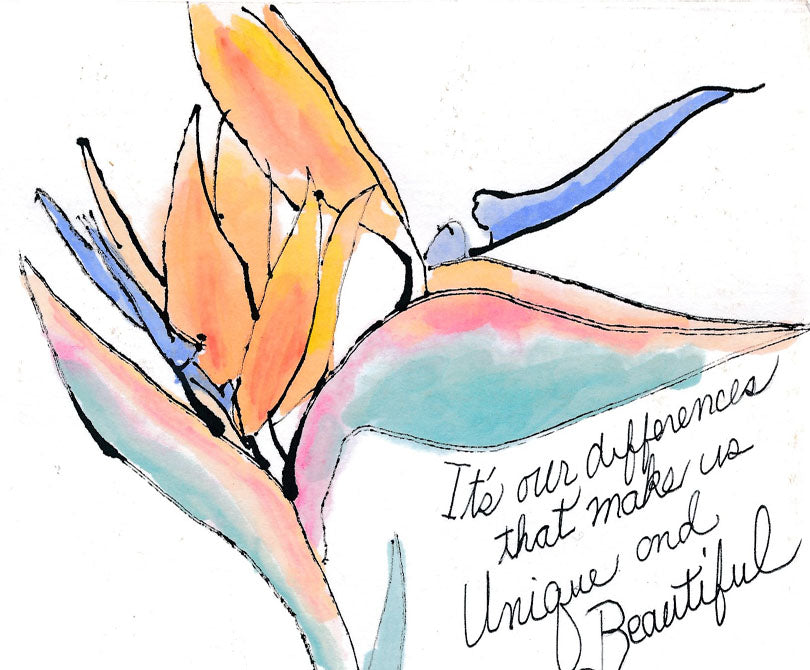 It's our differences
that make us
Unique and
Beautiful